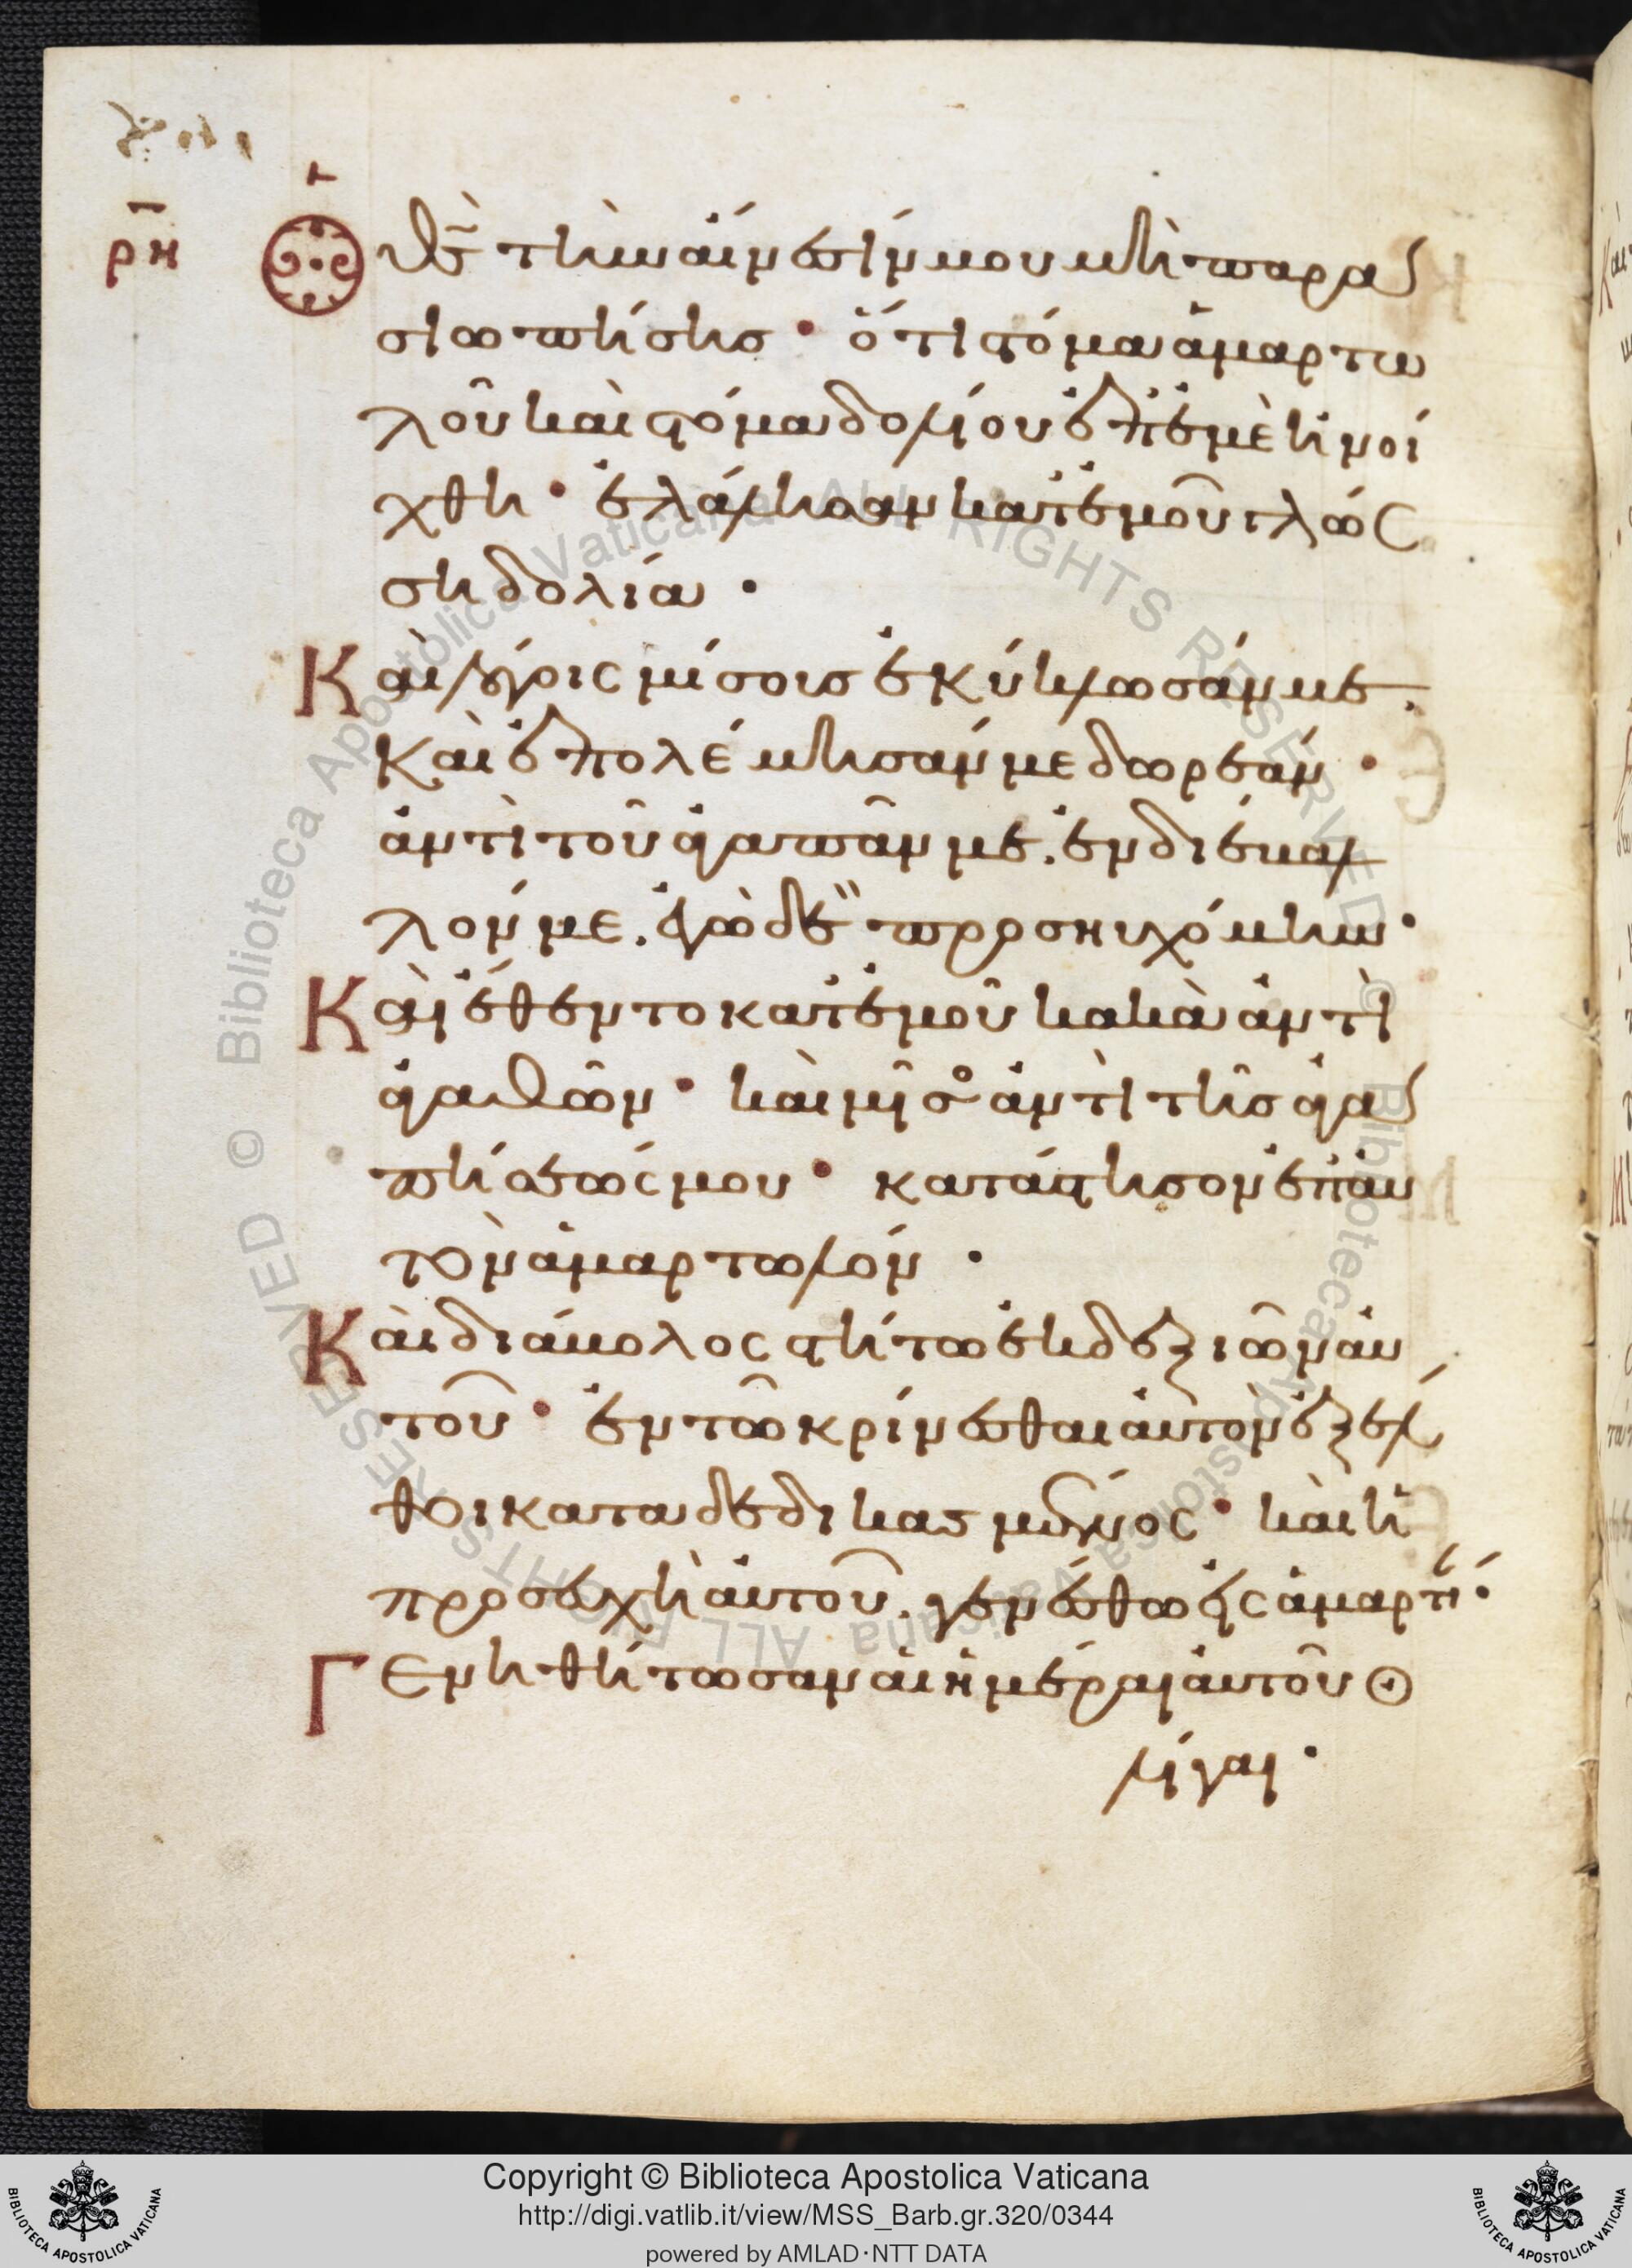 ρη
Ὁ θ̅ς̅ τὴν αἴνεσίν μου μὴ παρα
σιωπήσης· ὅτι στόμα ἁμαρτω
λοῦ καὶ στόμα δολίου ἐπ' ἐμὲ ἠνοί
χθη· ἐλάλησαν κατ' ἐμοῦ γλώσ
ση δολία·
Καὶ λόγοις μίσους ἐκύκλωσάν με.
καὶ ἐπολέμησάν με δωρεάν·
ἀντὶ τοῦ ἀγαπᾶν με. ἐνδιέβαλ
λόν με. ἐγὼ δὲ προσηυχόμην·
Καὶ ἔθεντο κατ' ἐμοῦ κακὰ ἀντὶ
ἀγαθῶν· καὶ μῖσος ἀντὶ τῆς ἀγα
πήσεώς μου· κατάστησον ἐπ' αὐ
τὸν ἁμαρτωλόν·
Καὶ διάβολος στήτω ἐκ δεξιῶν αὐ
τοῦ· ἐν τῶ κρίνεσθαι αὐτὸν ἐξέλ
θοι καταδεδικασμένος· καὶ ἡ
προσευχὴ αὐτοῦ. γενέσθω εἰς ἁμαρτί·
Γενηθήτωσαν αἱ ἡμέραι αὐτοῦ ὀ
λίγαι·
© Biblioteca Apostolica Vaticana ALL RIGHTS RESERVED © Biblioteca Apostolica Vaticana ALL RIGHTS RESERVED
Copyright © Biblioteca Apostolica Vaticana
http://digi.vatlib.it/view/MSS_Barb.gr.320/0344
powered by AMLAD·NTT DATA
BIBLIOTECA APOSTOLICA VATICANA
BIBLIOTECA APOSTOLICA VATICANA